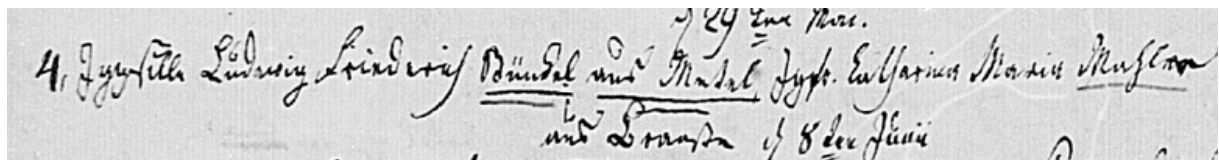 d 29 ten Mai.
4, Jggsille Ludewig Friederich Bünckel aus Metel Jgfr. Catharina Maria Mahler
aus d 8 ten Junii